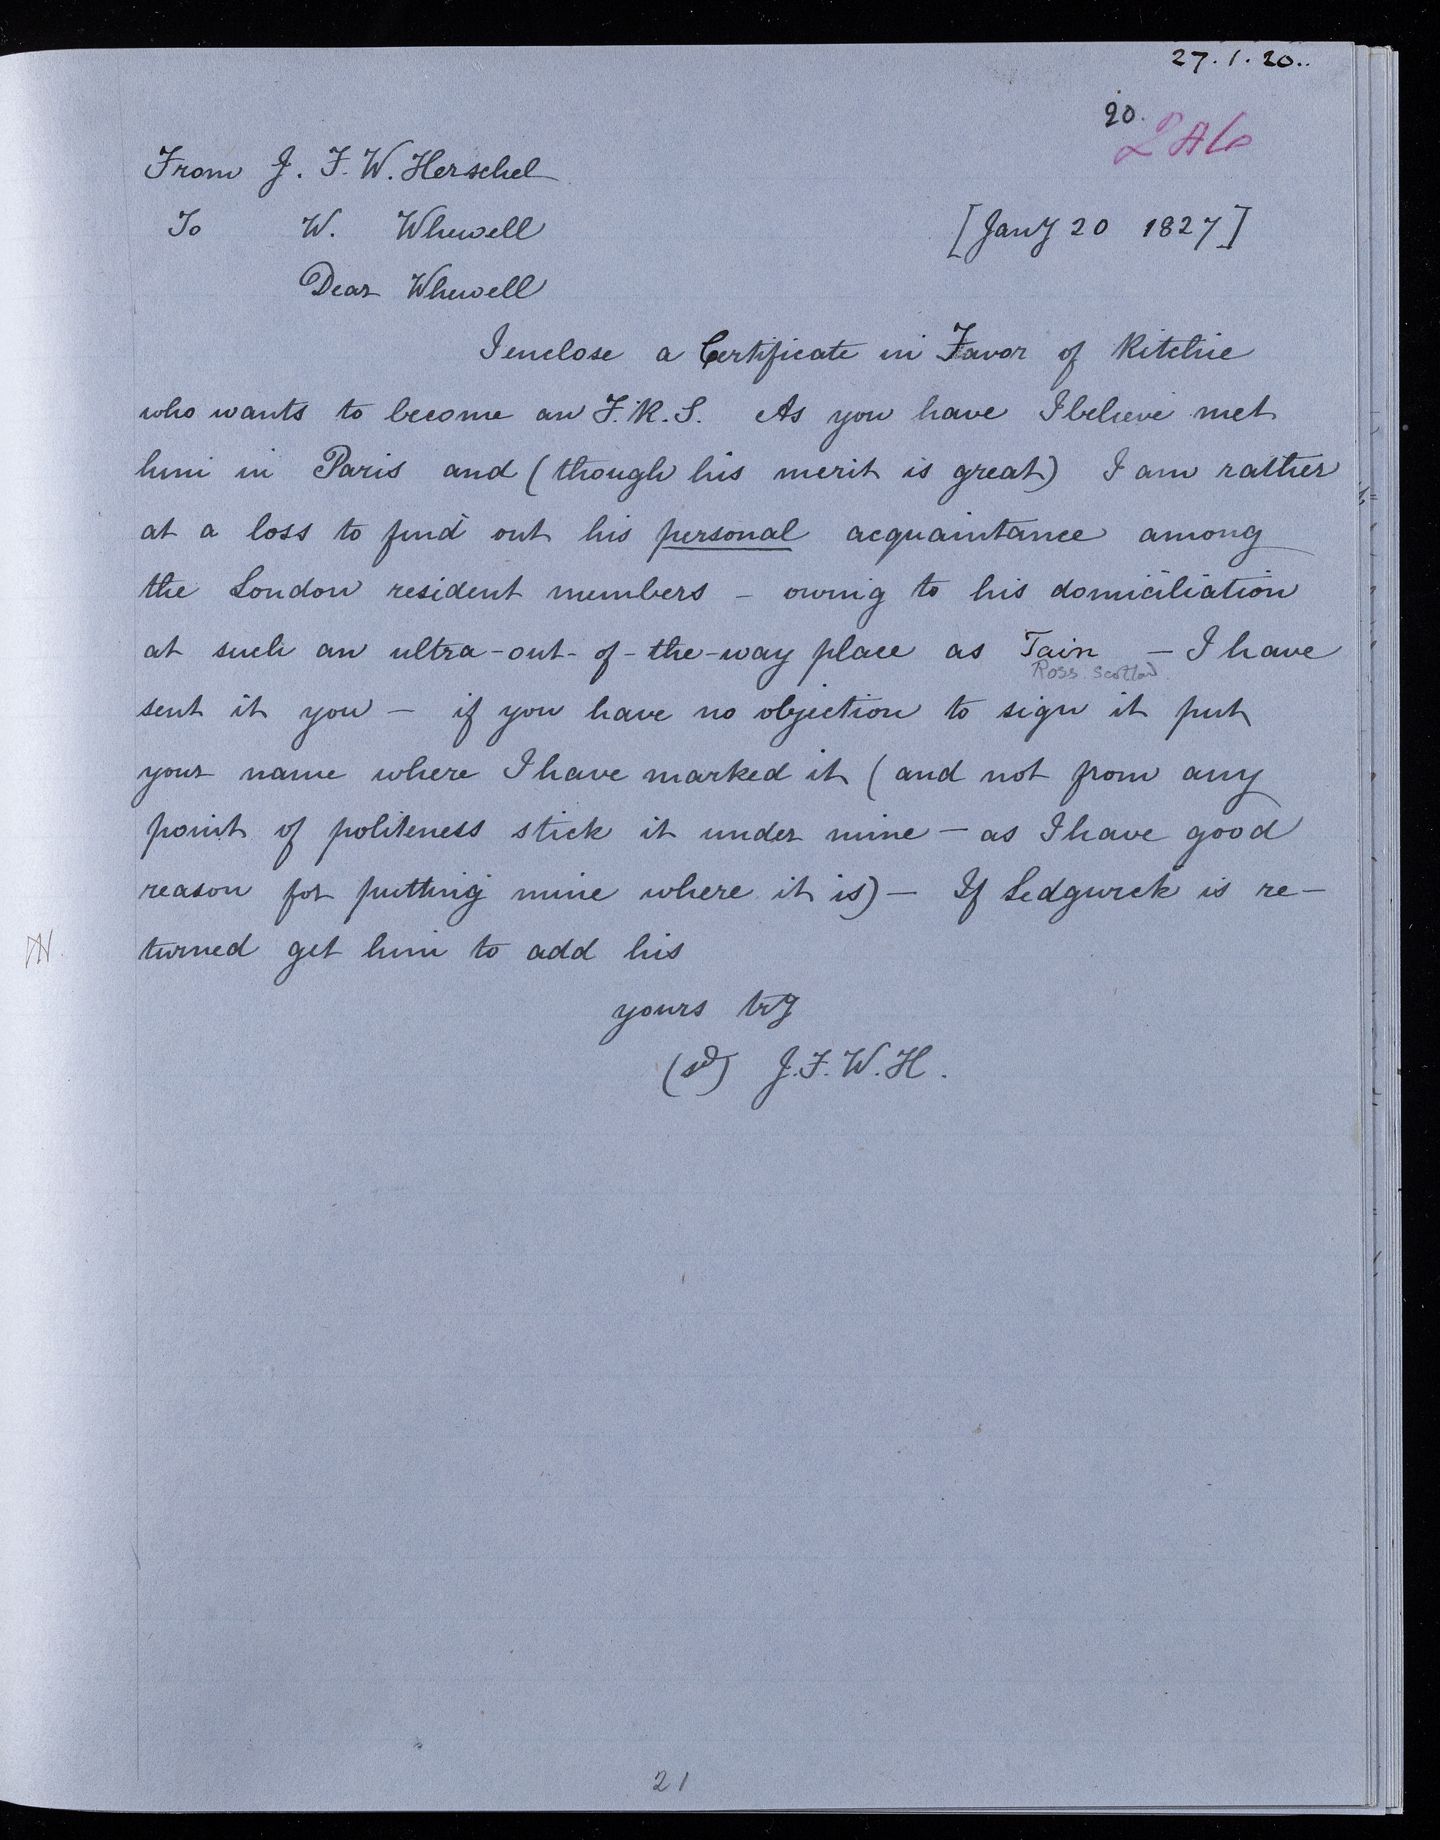 27.1.20..
20.
From J. F. W. Herschel
To W. Whewell [Jany 20 1827]
Dear Whewell
I enclose a Certificate in Favor of Ritchie
who wants to become an F.R.S. As you have I believe met
him in Paris and (though his merit is great) I am rather
at a loss to find out his personal acquaintance among
the London resident members – owing to his domiciliation
at such an ultra-out-of-the-way place as Tain – I have
Ross. Scotland.
sent it you – if you have no objection to sign it put
your name where I have marked it (and not from any
point of politeness stick it under mine – as I have good
reason for putting mine where it is) – If Sedgwick is re-
turned get him to add his
yours try
(sd) J.F.W.H.
21